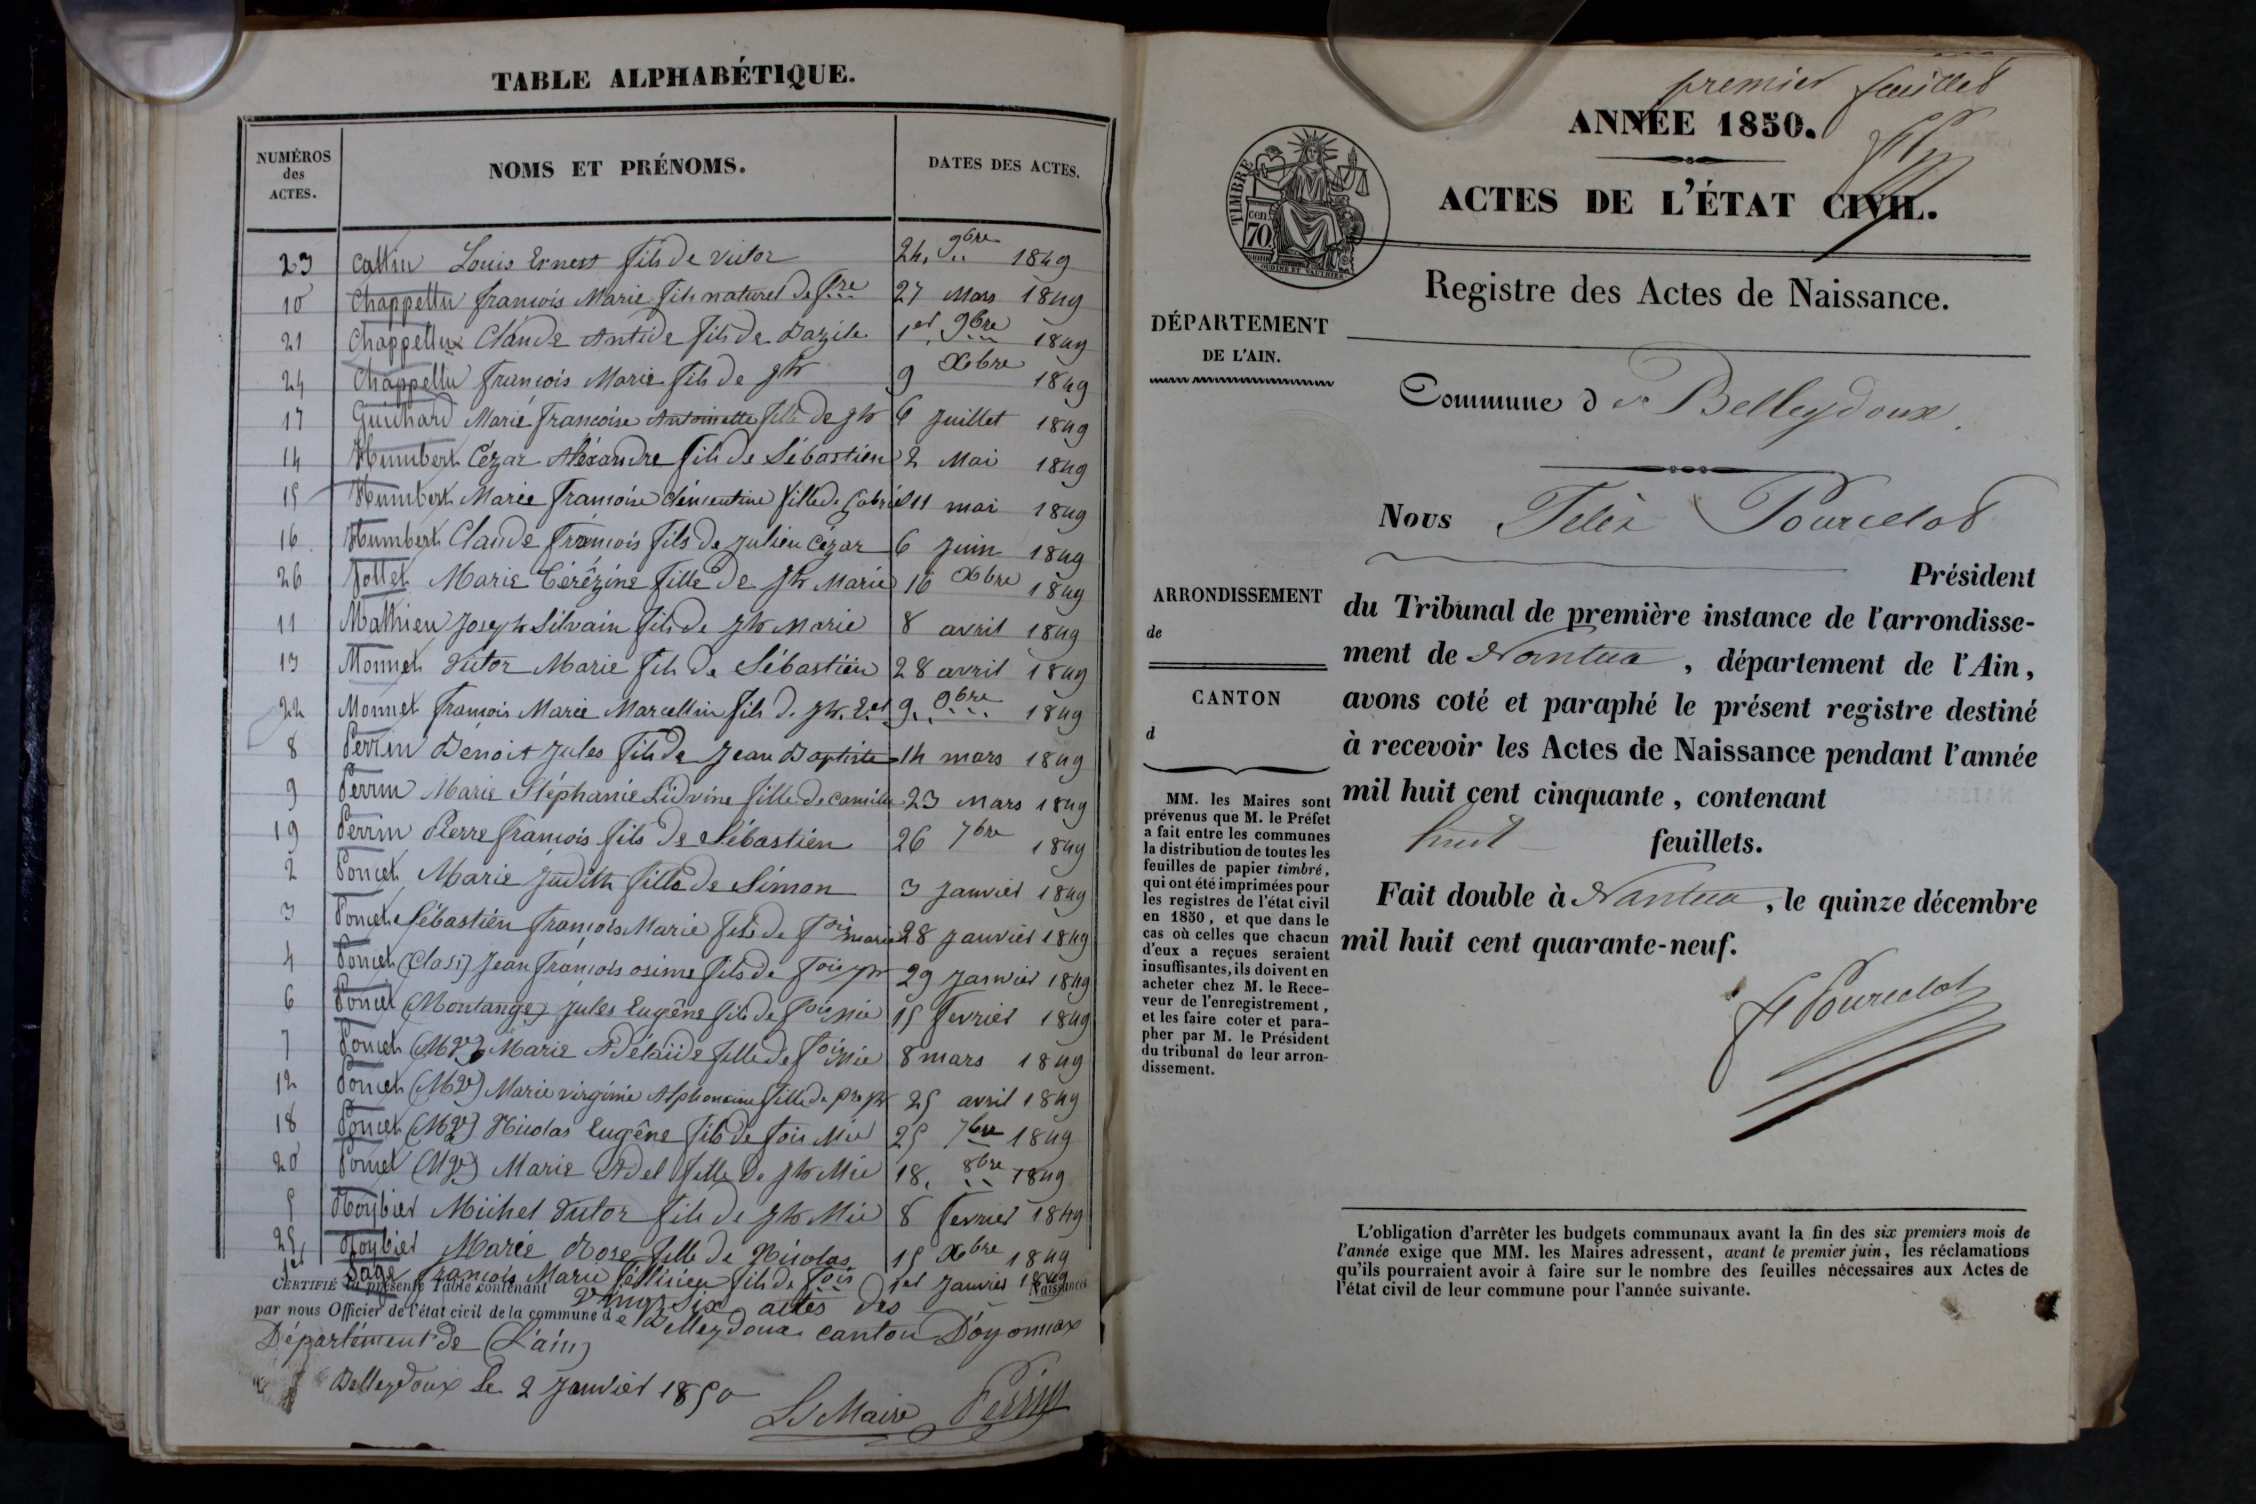 TABLE ALPHABÉTIQUE.
NUMÉROS des ACTES. NOMS ET PRÉNOMS. DATES DES ACTES.
23 Cattin Louis Ernest fils de Victor 24. 9bre 1849
10 Chappellu françois Marie fils naturel de fse 27 Mars 1849
21 Chappellux Claude Antide fils de Bazile 1er 9bre 1849
24 Chappellu françois Marie fils de jh 9 Xbre 1849
17 Guichard Marie françoise Antoinette fille de jh 6 juillet 1849
14 Humbert Cézar Aléxandre fils de Sébastien 2 Mai 1849
15 Humbert Marie françoise clémentine fille de Gabriel 11 mai 1849
16 Humbert Claude françois fils de julien Cézar 6 juin 1849
26 Jollet Marie Térézine fille de jh Marie 16 Xbre 1849
11 Mathieu joseph Silvain fils de jh Marie 8 avril 1849
13 Monnet Victor Marie fils de Sébastien 28 avril 1849
22 Monnet françois Marie Marcellin fils de jh. 9. 9bre 1849
8 Perrin Bénoit jules fils de jean Baptiste 14 mars 1849
9 Perrin Marie Stéphanie Lidvine fille de camille 23 Mars 1849
19 Perrin Pierre françois fils de Sébastien 26 7bre 1849
2 Poncet Marie judith fille de Simon 3 janvier 1849
3 Poncet Sébastien françois Marie fils de fois marie 28 janvier 1849
4 Poncet (Clasi) jean françois osime fils de fois jh 29 janvier 1849
6 Poncet (Montange) jules Eugêne fils de fois Mie 15 fevrier 1849
7 Poncet (Mge) Marie Adélaïde fille de fois Mie 8 mars 1849
12 Poncet (Mge) Marie virginie Alphonsine fille de jh 25 avril 1849
18 Poncet (Mge) Nicolas Eugêne fils de fois Mie 25 7bre 1849
20 Poncet (Mge) Marie Adel fille de jh Mie 18. 8bre 1849
5 Roybier Michel Victor fils de jh Mie 8 fevrier 1849
25 Roybier Marie Rose fille de Nicolas 15 Xbre 1849
1er Sage françois Marie féllicien fils de fois 1er janvier 1849
CERTIFIÉ la présente Table contenant vingt Six actes des Naissances
par nous Officier de l'état civil de la commune de Belleydoux canton D'oyonnax
Département de (L'ain)
Belleydoux le 2 janvier 1850
Le Maire Perrin
premier feuillet
ANNÉE 1850.
ACTES DE L'ÉTAT CIVIL.
TIMBRE
70 cen
Registre des Actes de Naissance.
DÉPARTEMENT
DE L'AIN.
Commune de Belleydoux.
Nous Félix Pourcelot
Président
ARRONDISSEMENT
de
CANTON
d
du Tribunal de première instance de l'arrondisse-
ment de Nantua, département de l'Ain,
avons coté et paraphé le présent registre destiné
à recevoir les Actes de Naissance pendant l'année
mil huit cent cinquante, contenant
huit feuillets.
Fait double à Nantua, le quinze décembre
mil huit cent quarante-neuf.
F Pourcelot
MM. les Maires sont
prévenus que M. le Préfet
a fait entre les communes
la distribution de toutes les
feuilles de papier timbré,
qui ont été imprimées pour
les registres de l'état civil
en 1850, et que dans le
cas où celles que chacun
d'eux a reçues seraient
insuffisantes, ils doivent en
acheter chez M. le Rece-
veur de l'enregistrement,
et les faire coter et para-
pher par M. le Président
du tribunal de leur arron-
dissement.
L'obligation d'arrêter les budgets communaux avant la fin des six premiers mois de
l'année exige que MM. les Maires adressent, avant le premier juin, les réclamations
qu'ils pourraient avoir à faire sur le nombre des feuilles nécessaires aux Actes de
l'état civil de leur commune pour l'année suivante.